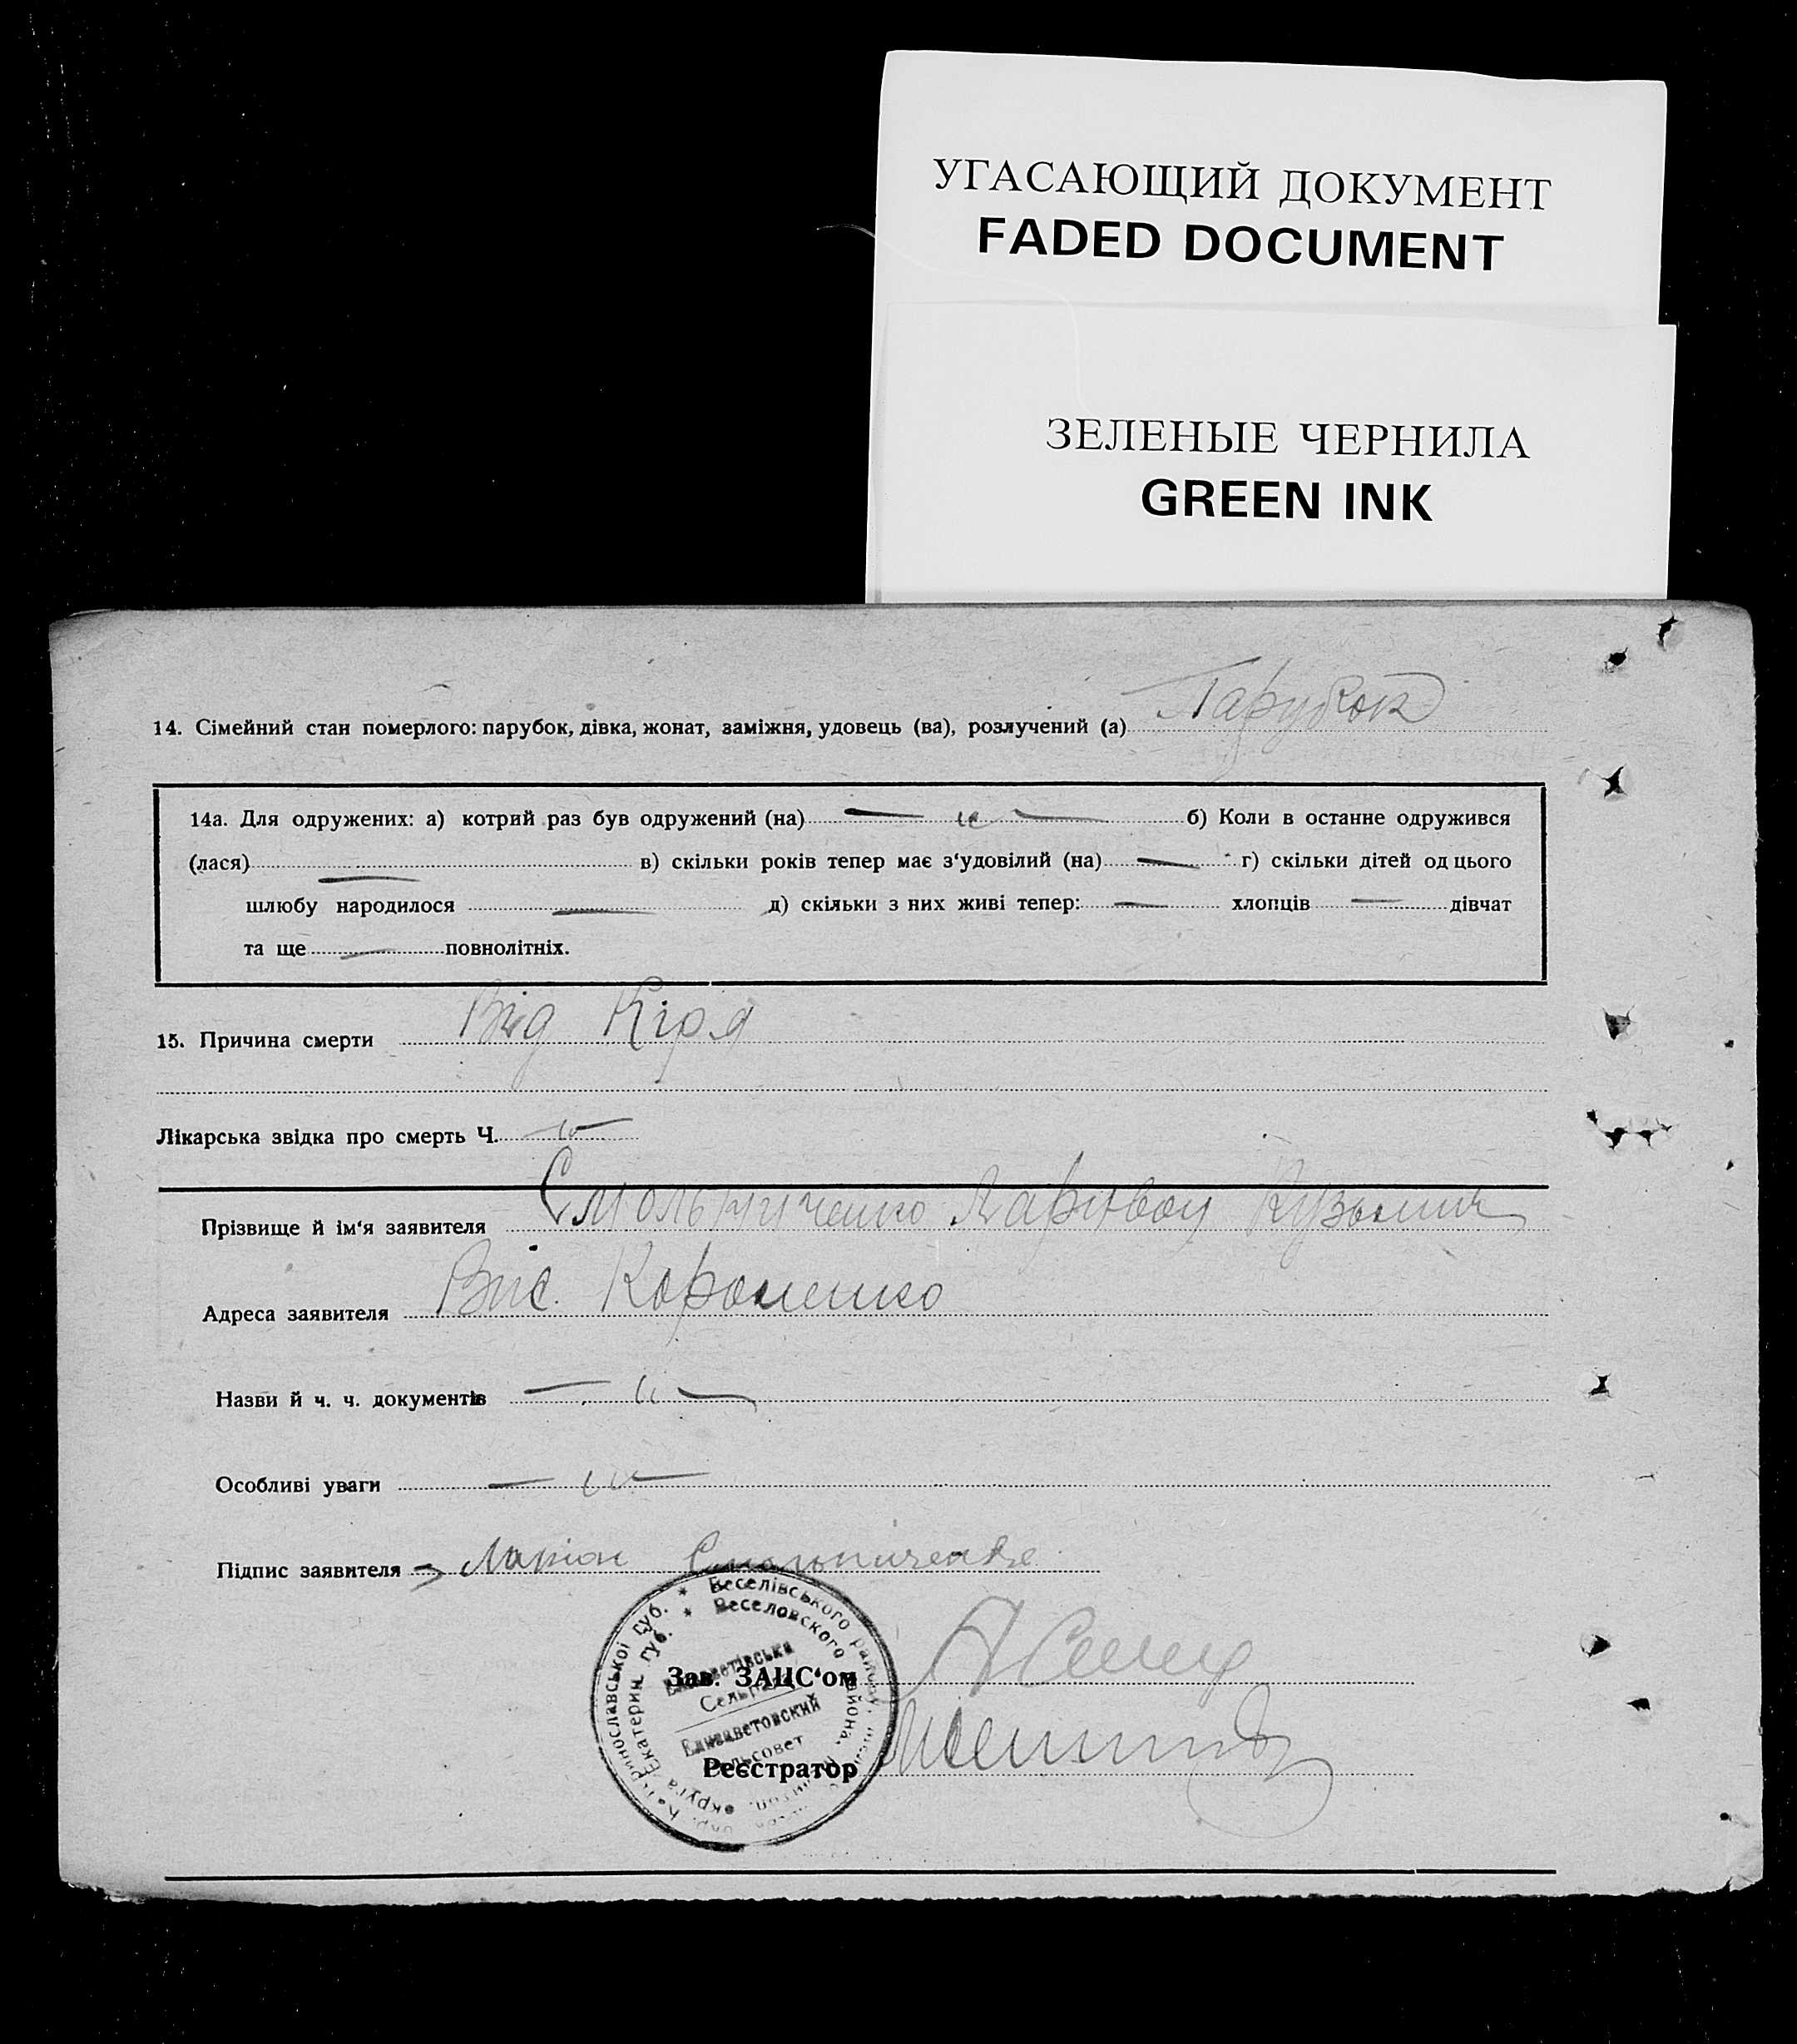 УГАСАЮЩИЙ ДОКУМЕНТ
FADED DOCUMENT
ЗЕЛЕНЫЕ ЧЕРНИЛА
GREEN INK
14. Сімейний стан померлого: парубок, дівка, жонат, заміжня, удовець (ва), розлучений (а) Парубок
14а. Для одружених: а) котрий раз був одружений (на) — „ — б) Коли в останне одружився
(лася) — в) скільки років тепер має з‘удовілий (на) — г) скільки дітей од цього
шлюбу народилося — д) скільки з них живі тепер: — хлопців — дівчат
та ще — повнолітніх.
15. Причина смерти Від Кіря
Лікарська звідка про смерть Ч. „ —
Прізвище й ім‘я заявителя Смольниченко Ларивон Кузьмич
Адреса заявителя Вис.
Назви й ч. ч. документів — „ —
Особливі уваги — „ —
Підпис заявителя Ларіон Смольниченко
Веселівського району
Веселовского района
Катеринославської губ.
Екатерин. губ.
округа
Єлизаветівська
Сельрада
Елизаветовский
сельсовет
Зав. ЗАЦС‘ом
Реєстратор